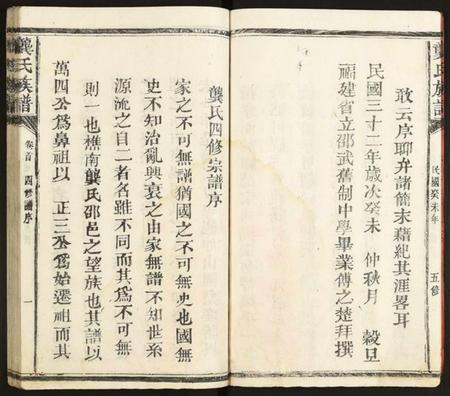 龔氏族譜
民國癸未年
五修
敢云序聊弁諸簡末藉紀其涯畧耳
民國三十二年歲次癸未 仲秋月 穀旦
福建省立邵武舊制中學畢業傅之楚拜撰
龔氏四修宗譜序
家之不可無譜猶國之不可無史也國無
史不知治亂興衰之由家無譜不知世系
源流之自二者名雖不同而其為不可無
則一也樵南龔氏邵邑之望族也其譜以
萬四公為鼻祖以 正三公為始遷祖而其
龔氏族譜
卷首 四修譜序
一